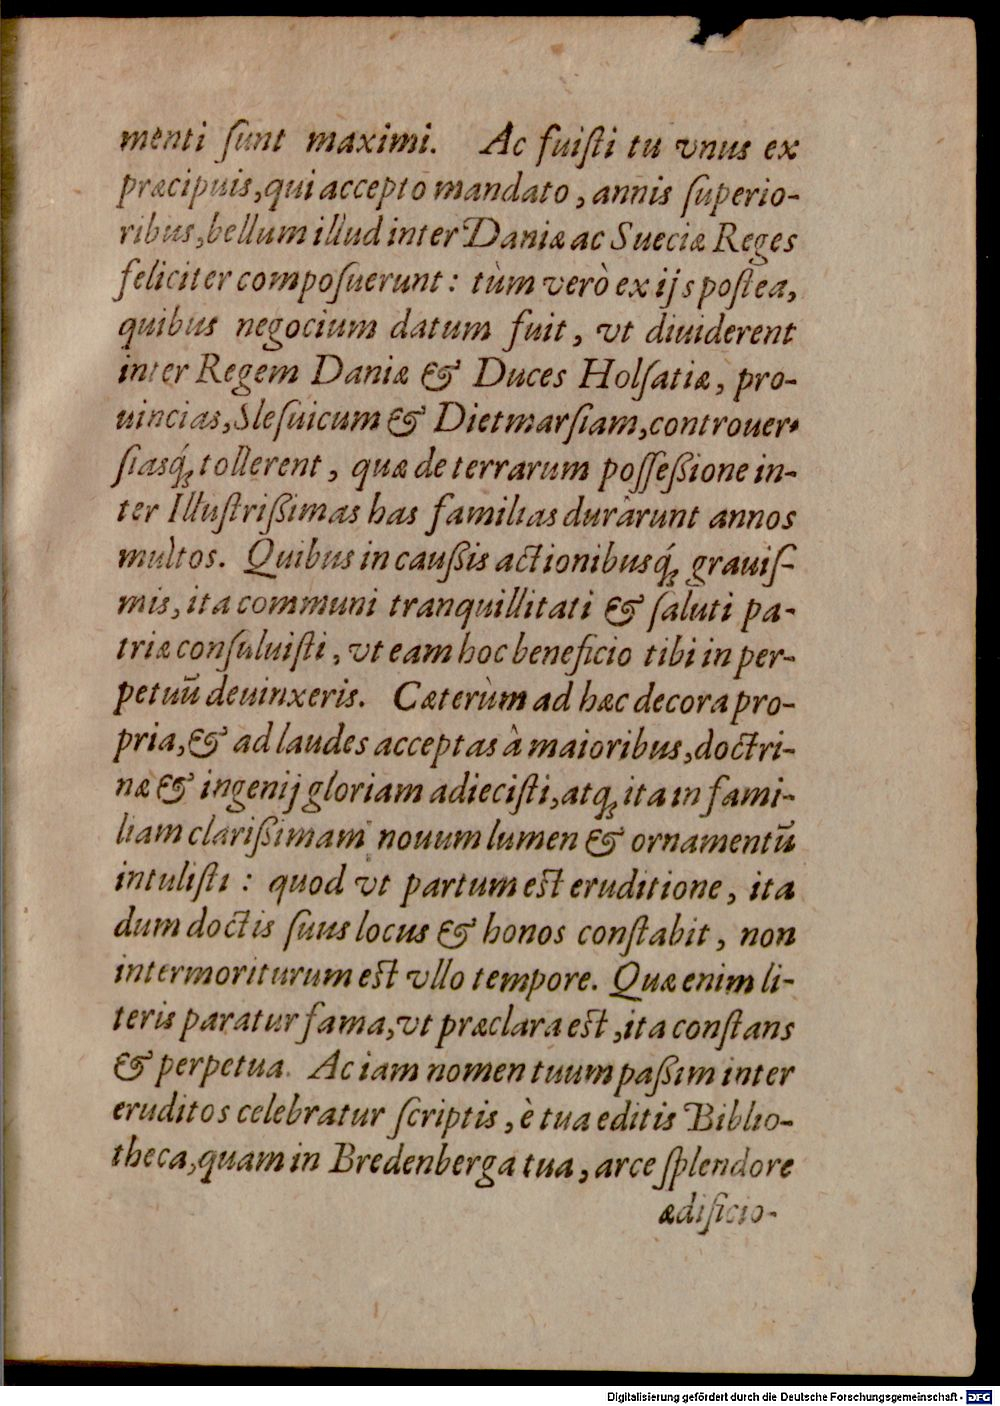 menti ſunt maximi. Ac fuiſti tu vnus ex
præcipuis, qui accepto mandato, annis ſuperio-
ribus, bellum illud inter Daniæ ac Sueciæ Reges
feliciter compoſuerunt: tùm verò ex ijs poſtea,
quibus negocium datum fuit, vt diuiderent
inter Regem Daniæ & Duces Holſatiæ, pro-
uincias, Sleſuicum & Dietmarſiam, controuer-
ſiasq́; tollerent, quæ de terrarum poſſeßione in-
ter Illuſtrißimas has familias durârunt annos
multos. Quibus in caußis actionibusq́; grauiſ-
mis, ita communi tranquillitati & ſaluti pa-
triæ conſuluiſti, vt eam hoc beneficio tibi in per-
petuũ deuinxeris. Cæterùm ad hæc decora pro-
pria, & ad laudes acceptas à maioribus, doctri-
næ & ingenij gloriam adieciſti, atq; ita in fami-
liam clarißimam nouum lumen & ornamentũ
intuliſti: quod vt partum eſt eruditione, ita
dum doctis ſuus locus & honos conſtabit, non
intermoriturum eſt vllo tempore. Quæ enim li-
teris paratur fama, vt præclara eſt, ita conſtans
& perpetua. Ac iam nomen tuum paßim inter
eruditos celebratur ſcriptis, è tua editis Biblio-
theca, quam in Bredenberga tua, arce ſplendore
ædificio-
Digitalisierung gefördert durch die Deutsche Forschungsgemeinschaft - DFG